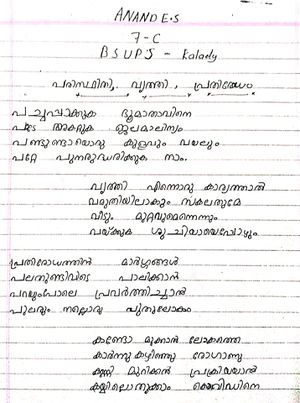 ANAND E.S
7-C
BSUPS - Kalady
പരിസ്ഥിതി, വൃത്തി, പ്രതിരോധം
പച്ചപ്പാക്കുക ഭൂമാതാവിനെ
അകറ്റുക ജലമാലിന്യം
പണ്ടുണ്ടായൊരു കുളവും വയലും
പറ്റേ പുനരുദ്ധരിക്കുക നാം.
വൃത്തി എന്നൊരു കാര്യത്താൽ
വരുതിയിലാകും സകലതുമേ
വീടും മുറ്റവുമെന്നെന്നും
വയ്ക്കുക ശുചിയായെപ്പോഴും
പ്രതിരോധത്തിൻ മാർഗ്ഗങ്ങൾ
പലതുണ്ടിവിടെ പാലിക്കാൻ
പറയുംപോലെ പ്രവർത്തിച്ചാൽ
പുലരും നല്ലൊരു പുതുലോകം
കണ്ടോ മുക്കാൻ ലോകത്തെ
കാർന്നു കഴിഞ്ഞു രോഗാണു
കണ്ണി മുറിക്കാൻ പ്രക്രിയയാൽ